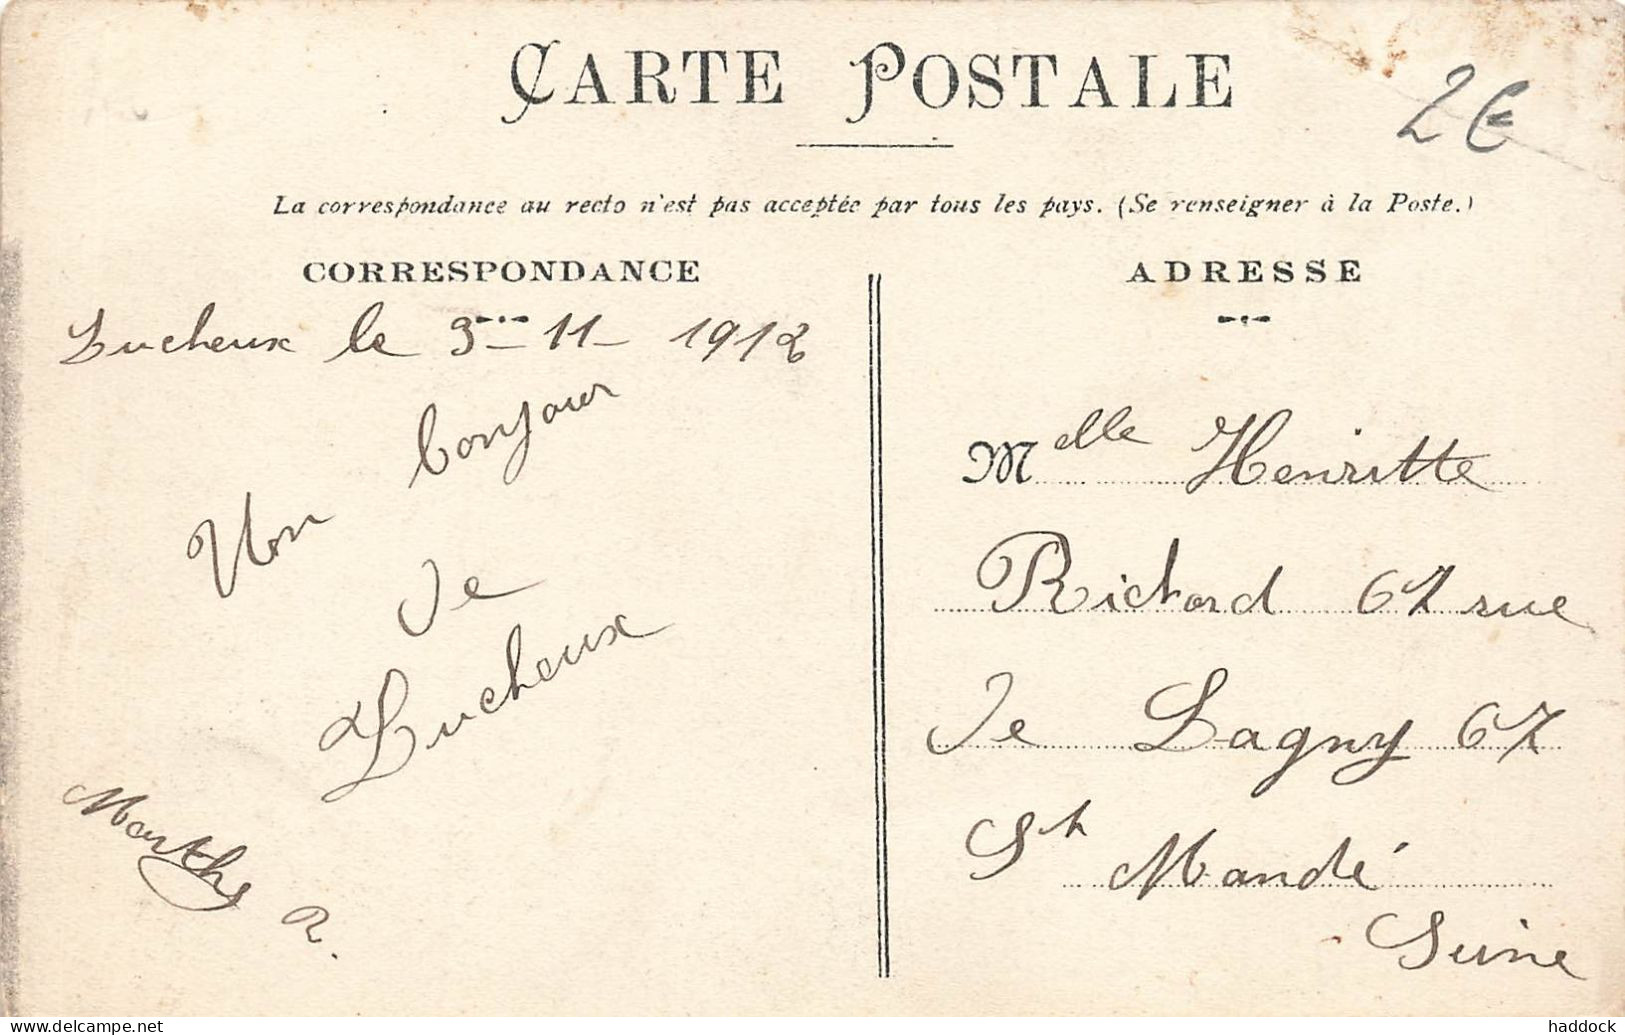 CARTE POSTALE
2€
La correspondance au recto n'est pas acceptée par tous les pays. (Se renseigner à la Poste.)
CORRESPONDANCE
Lucheux le 3-11-1912
Un bonjour
de
Lucheux
Marthe R.
ADRESSE
Melle Henriette
Richard 67 rue
de Lagny 67
St Mandé
Seine
delcampe.net
haddock